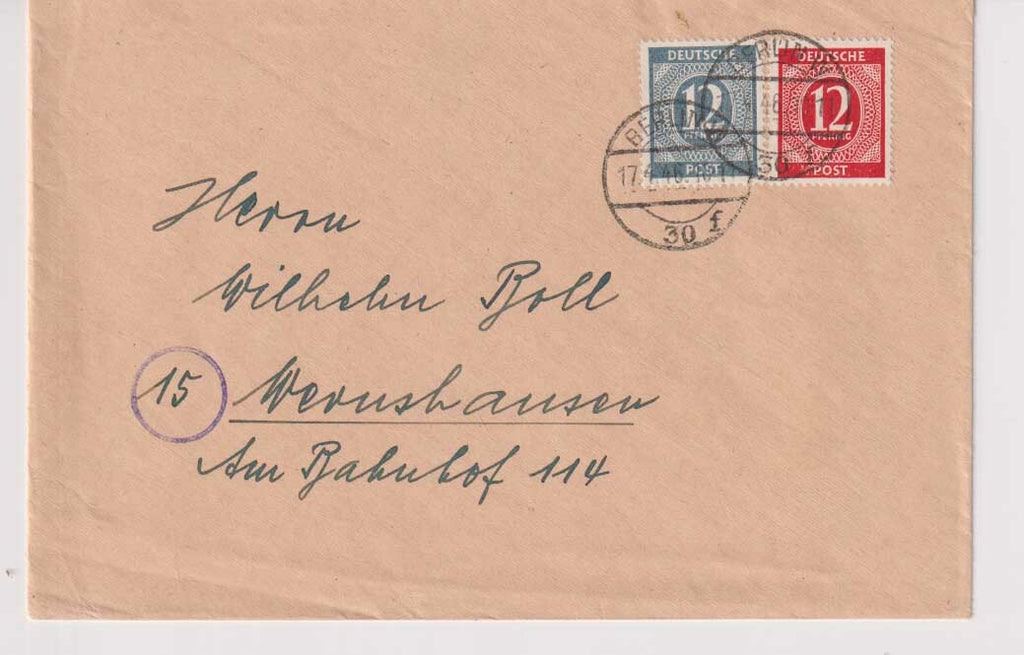 DEUTSCHE
12
PFENNIG
POST
DEUTSCHE
12
PFENNIG
POST
BERLIN
30
BERLIN
17. 46.
30 f
Herrn
Wilhelm Boll
15 Wernshausen
Am Bahnhof 114